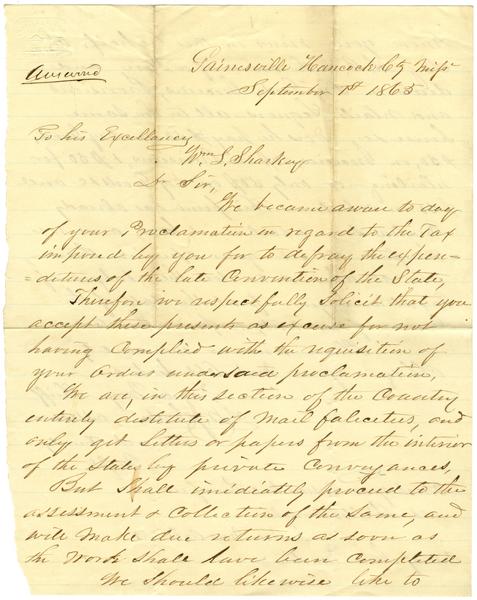 Gainesville Hancock Cty Miss
September 1st 1865
Answered
To his Excellancy
Wm L. Sharkey
Dr Sir,
We became aware to day
of your Proclamation in regard to the Tax
imposed by you for to defray the expen=
=ditures of the late Convention of the State,
Therefore we respectfully Solicit that you
accept these presents as excuse for not
having Complied with the requisition of
your orders under said proclamation,
We are, in this section of the Country
entirely distitute of Mail falicities, and
only get Letters or papers from the interior
of the State by private Conveyances,
But Shall imidiatly proceed to the
assessment & Collection of the Same, and
will make due returns as soon as
the Work Shall have been Completed
We Should likewise like to